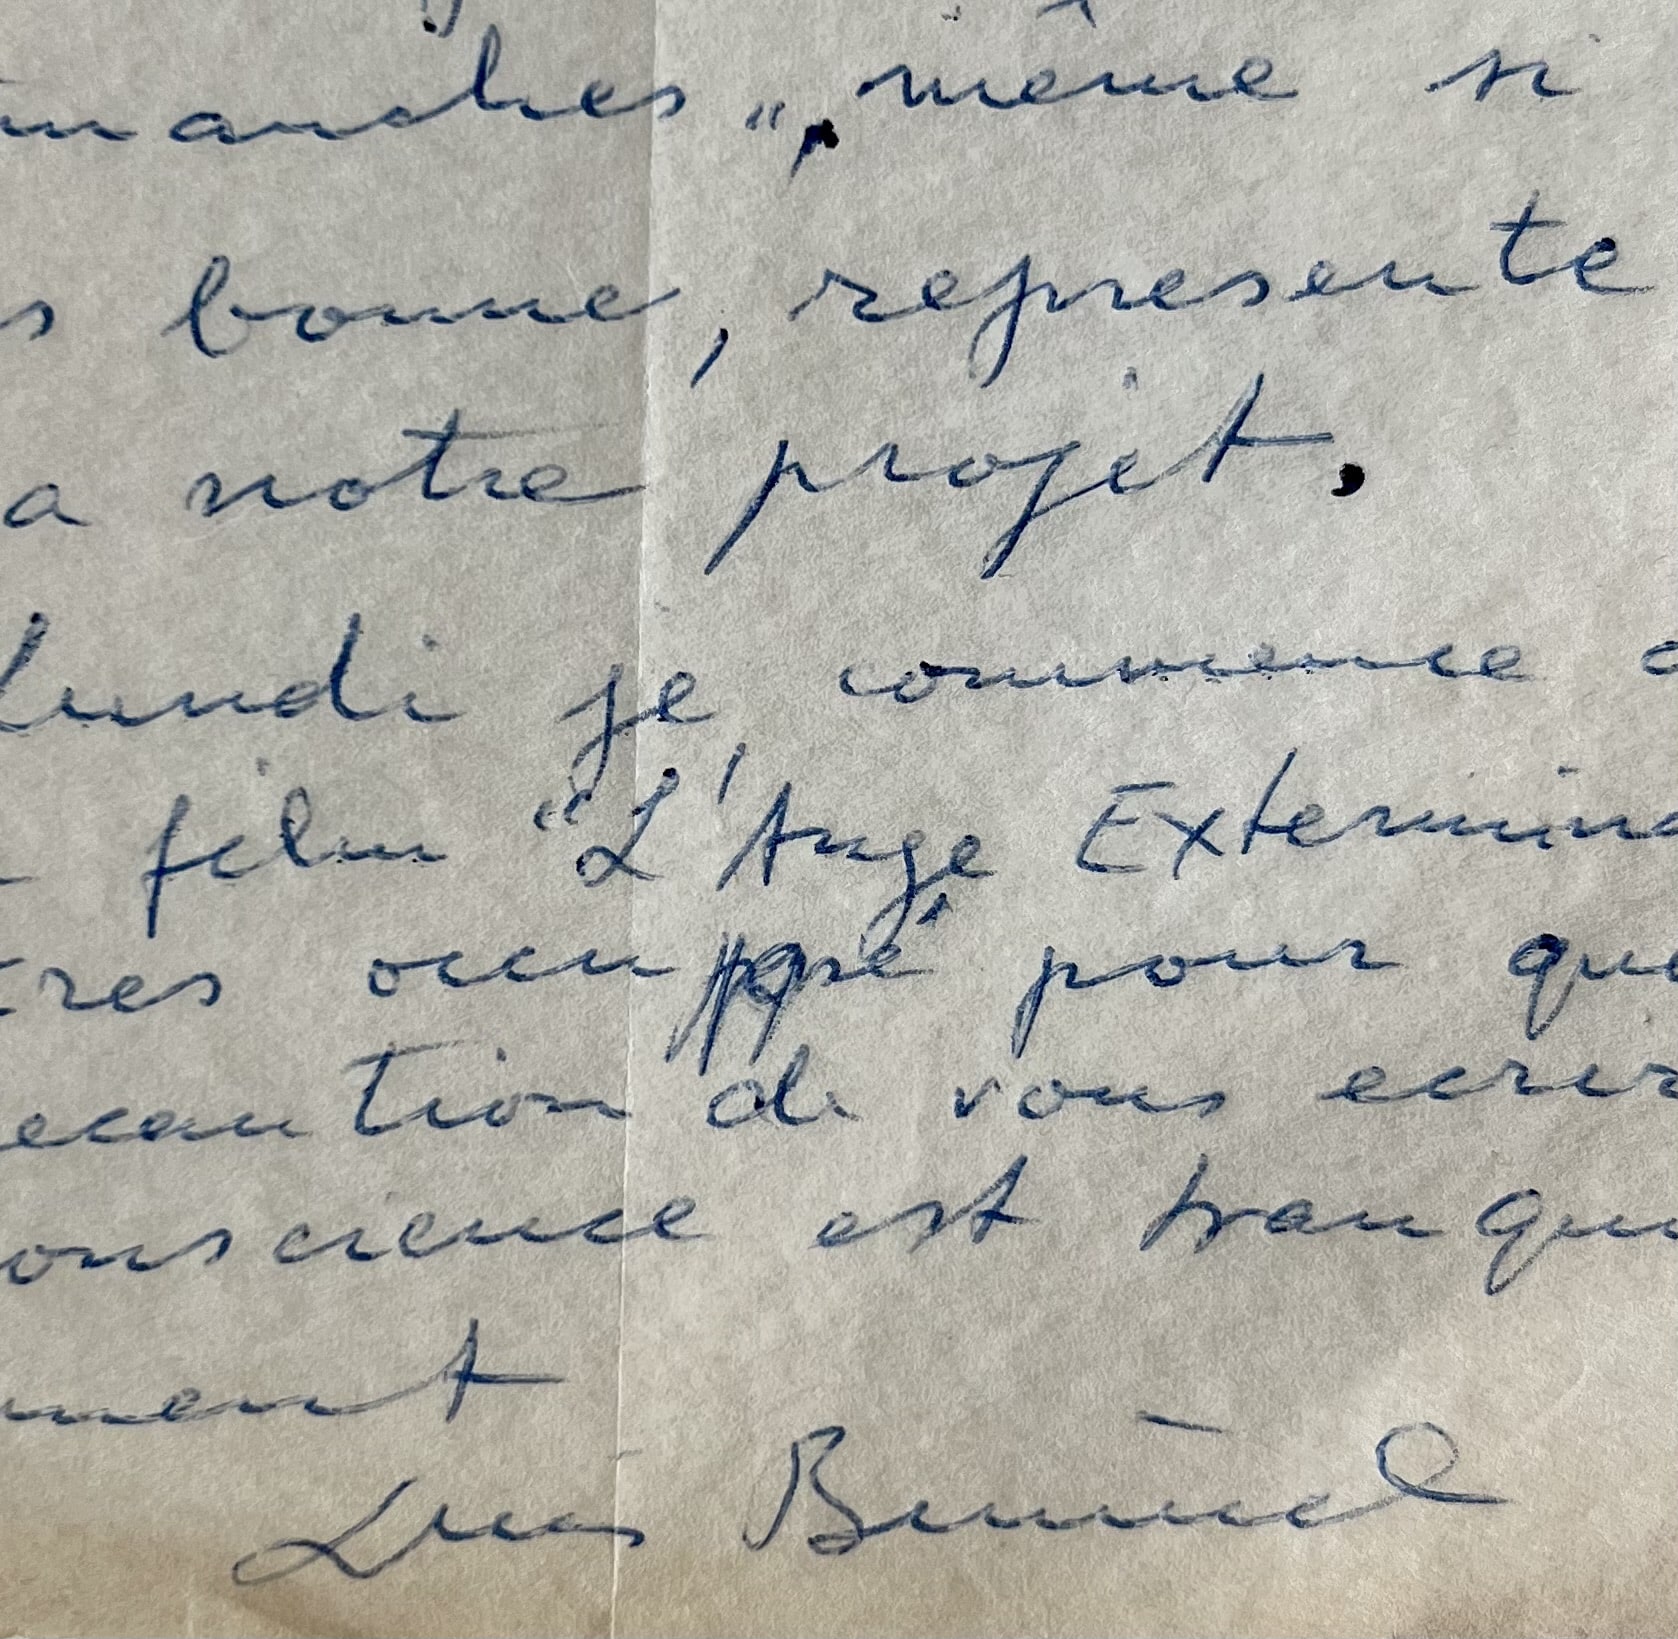 manches", même si
s bonne, represente
a notre projet.
Lundi je commence a
film "L'Ange Extermina
tres occuppé pour que
ecaution de vous ecrir
onscience est tranqui
ment
Luis Buñuel